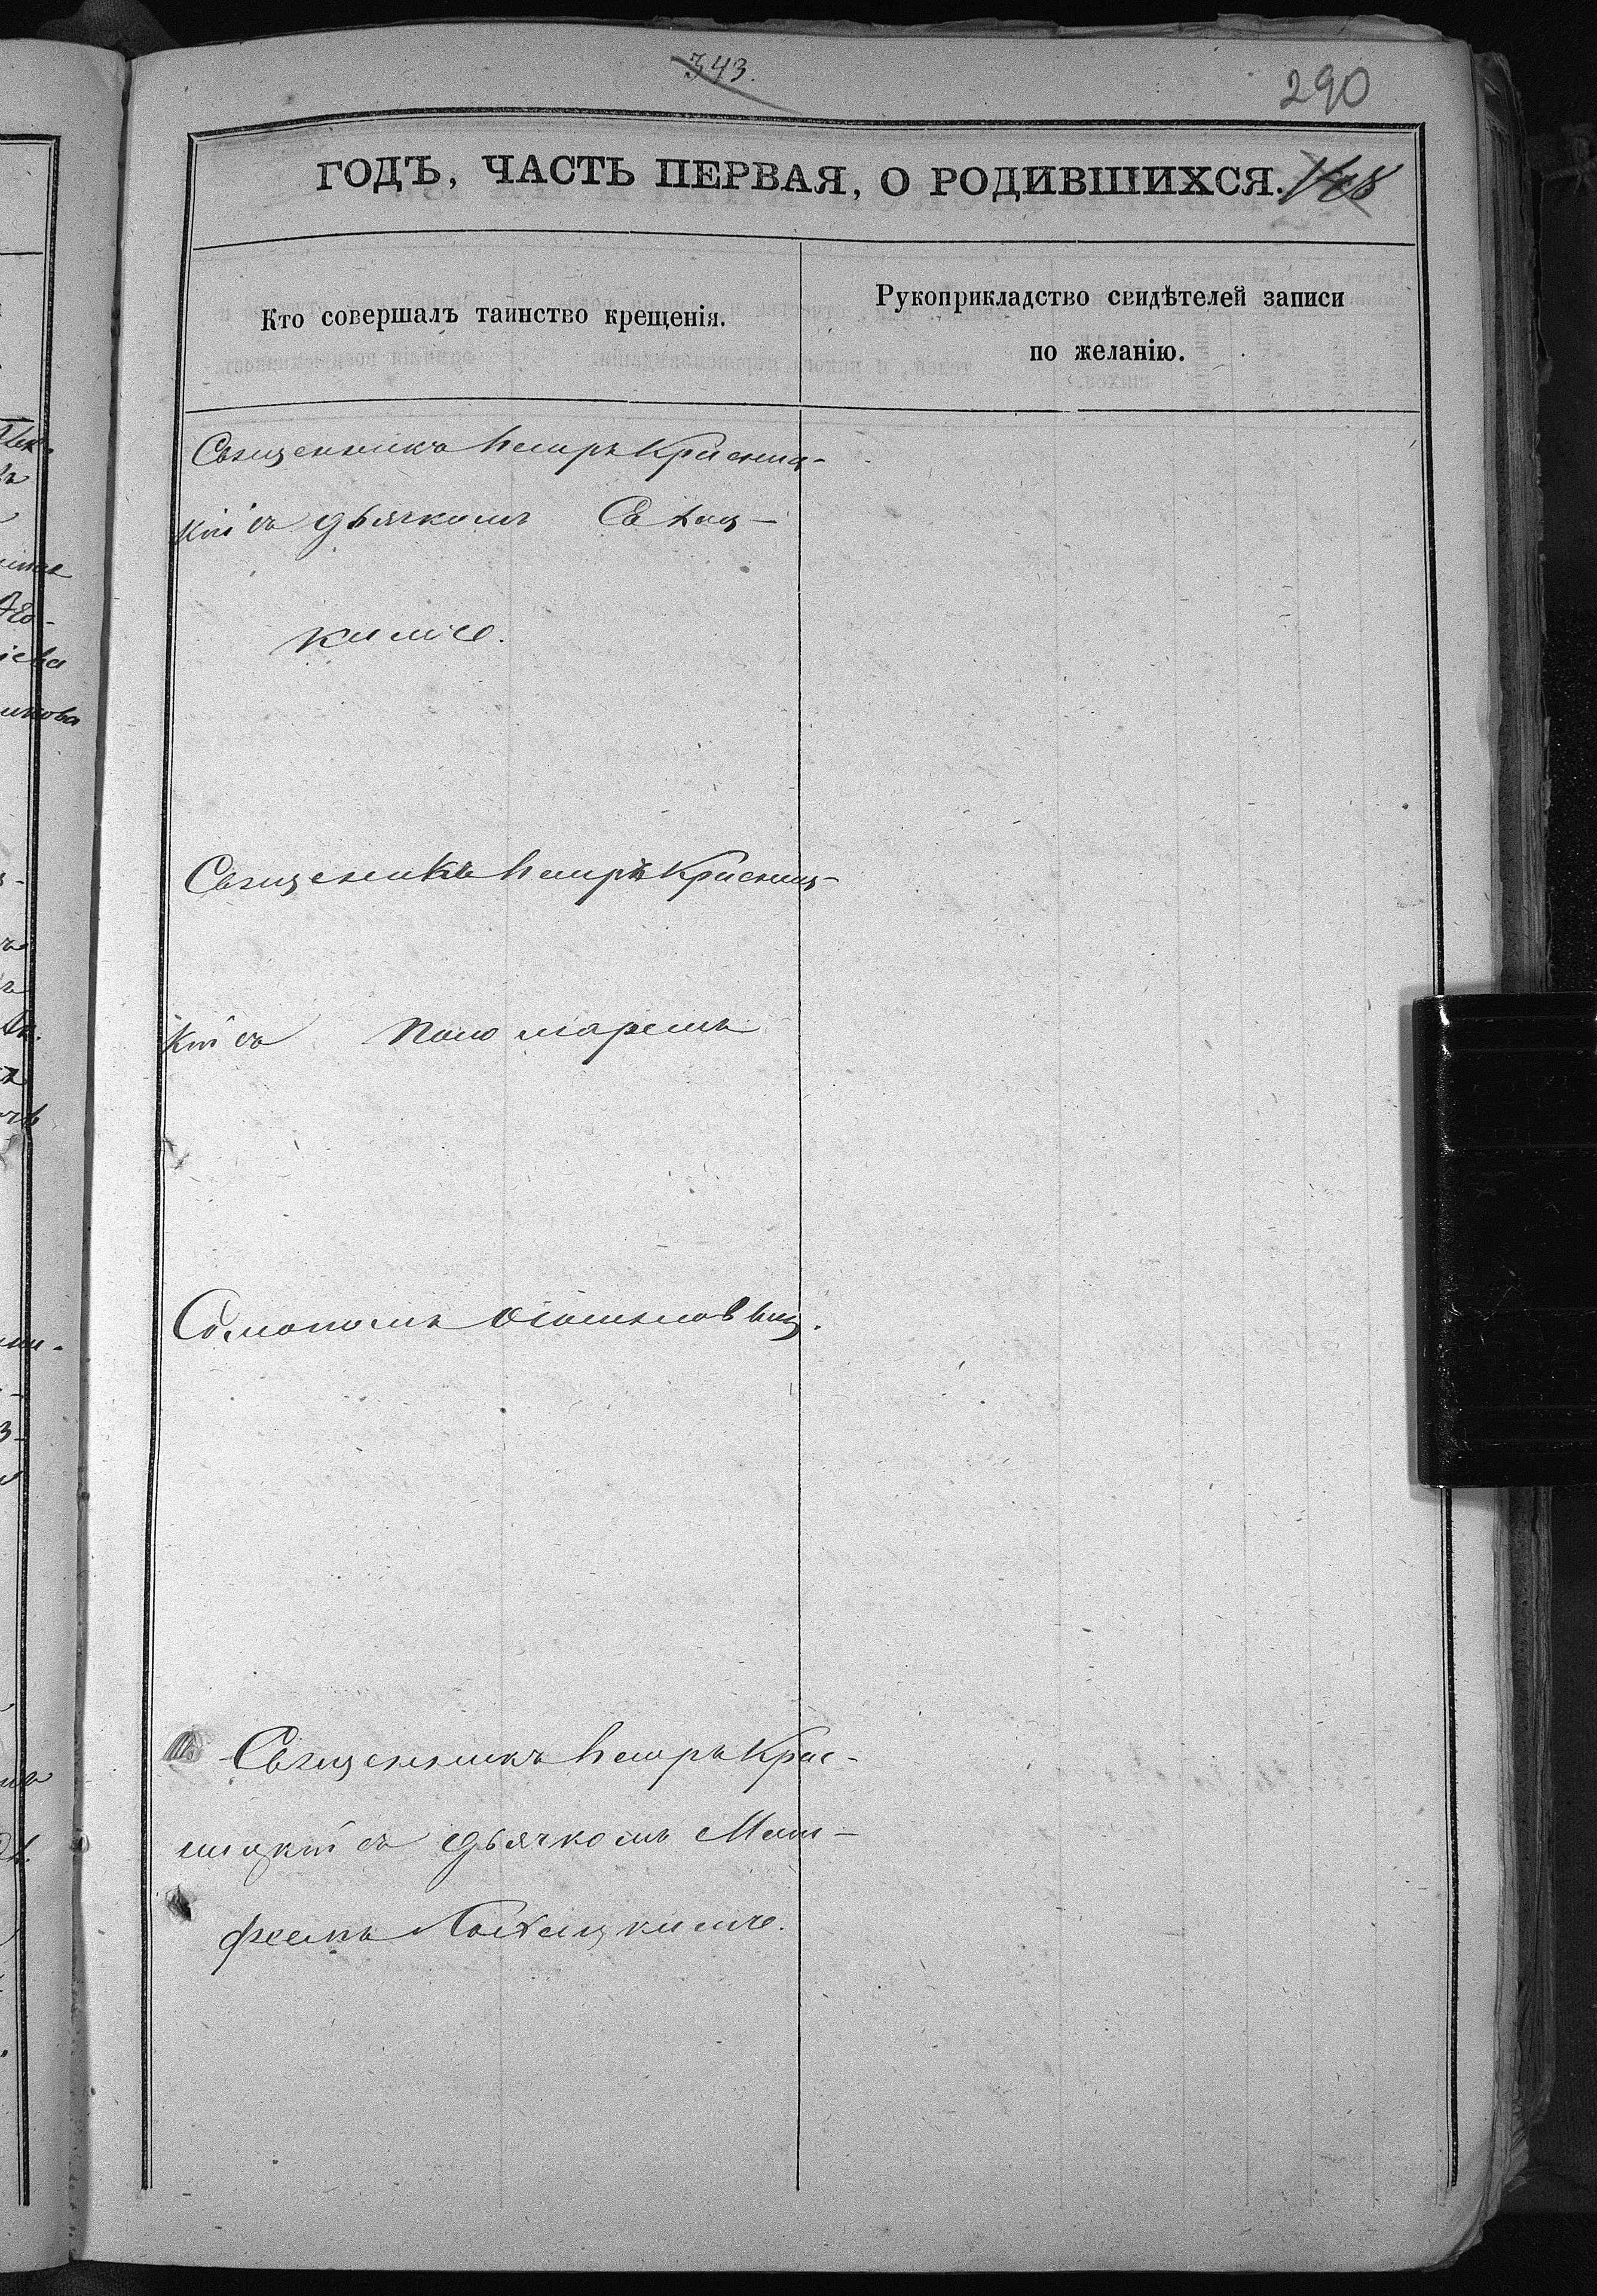 343.
290
ГОДЪ, ЧАСТЬ ПЕРВАЯ, О РОДИВШИХСЯ.
Кто совершалъ таинство крещенія.
Рукоприкладство свидѣтелей записи
по желанію.
Священникъ Петръ Красниц-
кій съ дьячкомъ
кимъ.
Священникъ Петръ Красниц-
кій съ пономаремъ
Священникъ Петръ Крас-
ницкій съ дьячкомъ Мат-
феемъ